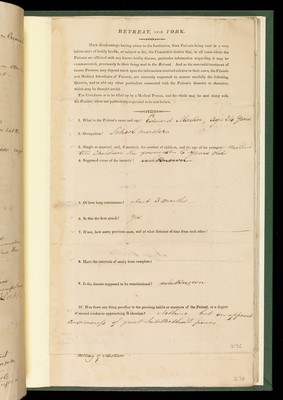 RETREAT, near YORK.
Much disadvantage having arisen to the Institution, from Patients being sent in a very
infirm state of bodily health, or subject to fits, the Committee desires that, in all cases where the
Patients are afflicted with any known bodily disease, particular information respecting it may be
communicated, previously to their being sent to the Retreat. And as the successful treatment of
insane Persons, may depend much upon the information received relative to their cases, the Friends
and Medical Attendants of Patients, are earnestly requested to answer carefully the following
Queries, and to add any other particulars connected with the Patient's disorder or recovery,
which may be thought useful.
The Certificate is to be filled up by a Medical Person, and the whole may be sent along with
the Patient when not particularly requested to be sent before.
1. What is the Patient's name and age? Edward Age 54 Years
2. Occupation? School master
3. Single or married; and, if married, the number of children, and the age of the youngest?
the youngest years old
4. Supposed cause of the insanity? unknown
5. Of how long continuance? about 3 months
6. Is this the first attack? Yes
7. If not, how many previous ones, and at what distance of time from each other?
8. Have the intervals of sanity been complete?
9. Is the disease supposed to be constitutional? unknown
10. Was there any thing peculiar in the previous habits or manners of the Patient, or a degree
of mental weakness approaching to idiotism? Nothing but an apparent
of great Intellectual powers